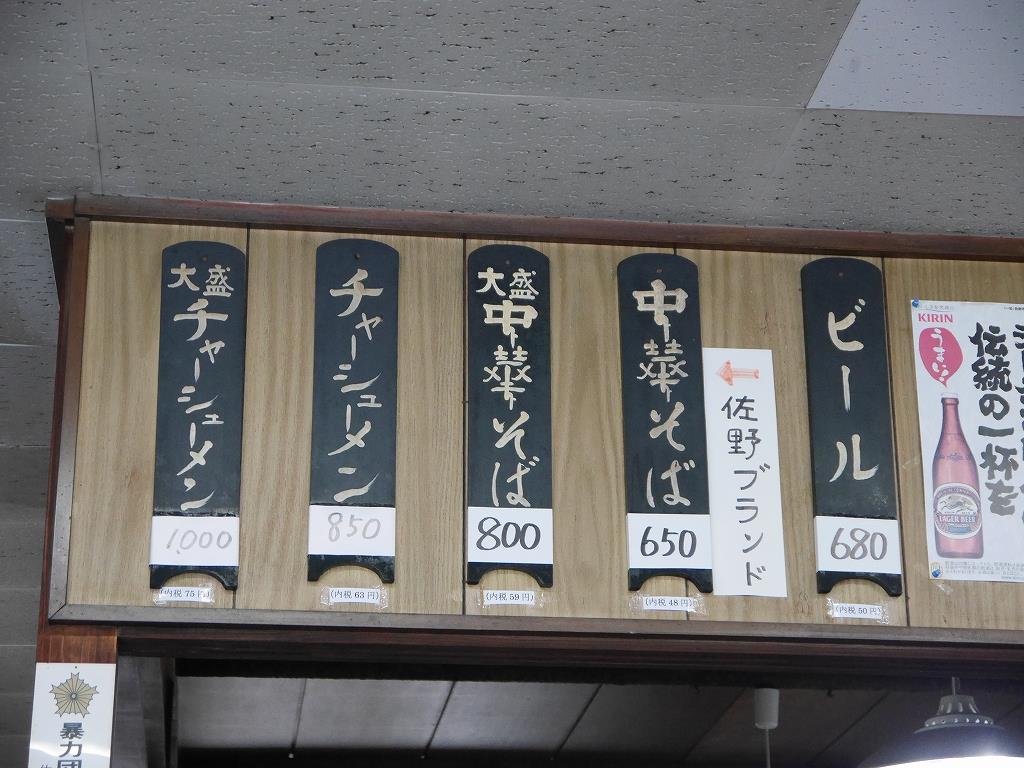 大盛チャーシューメン
1,000
(内税 75円)
チャーシューメン
850
(内税 63円)
大盛中華そば
800
(内税 59円)
中華そば
650
(内税 48円)
佐野ブランド
ビール
680
(内税 50円)
KIRIN
うまい!
伝統の一杯を
LAGER BEER
暴力団